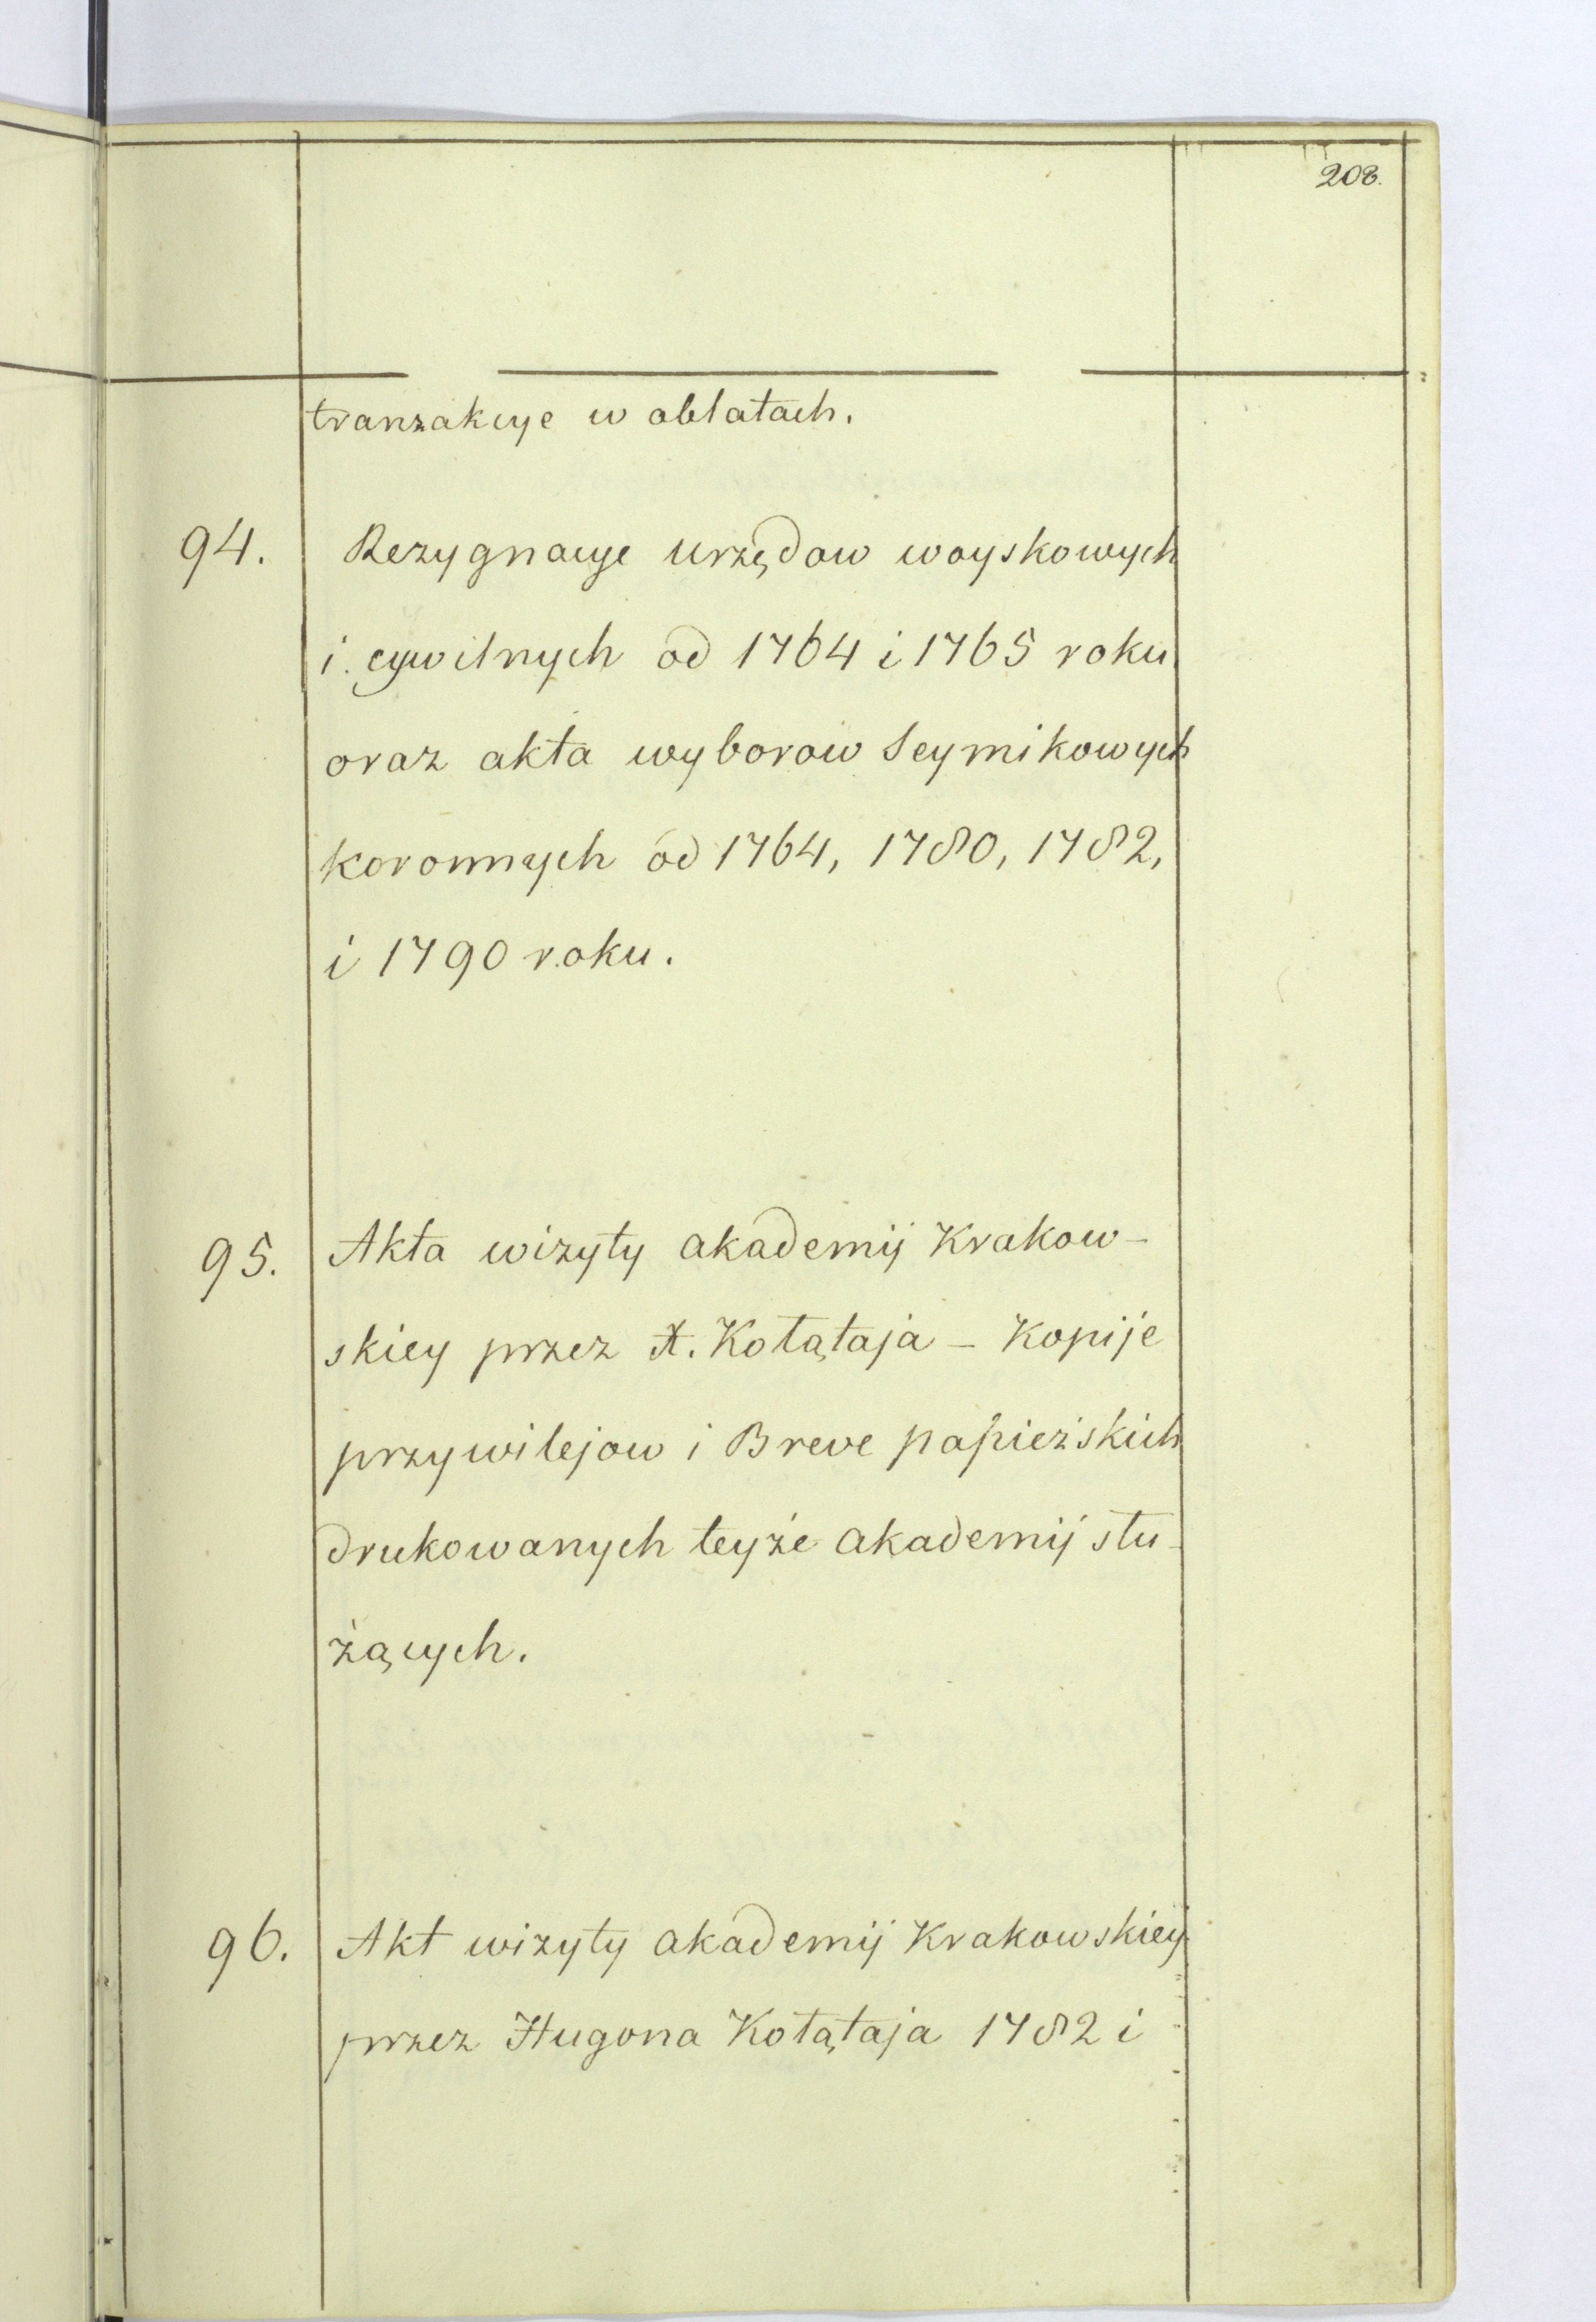 208.
tranzakcye w oblatach.
94. Rezygnacye urzędow woyskowych
i cywilnych od 1764 i 1765 roku
oraz akta wyborow Seymikowych
koronnych od 1764, 1780, 1782,
i 1790 roku.
95. Akta wizyty akademij Krakow-
skiey przez X. Kołątaja - Kopije
przywilejow i Breve papieżskich
drukowanych teyże akademij słu-
żących.
96. Akt wizyty akademij Krakowskiey
przez Hugona Kołątaja 1782 i